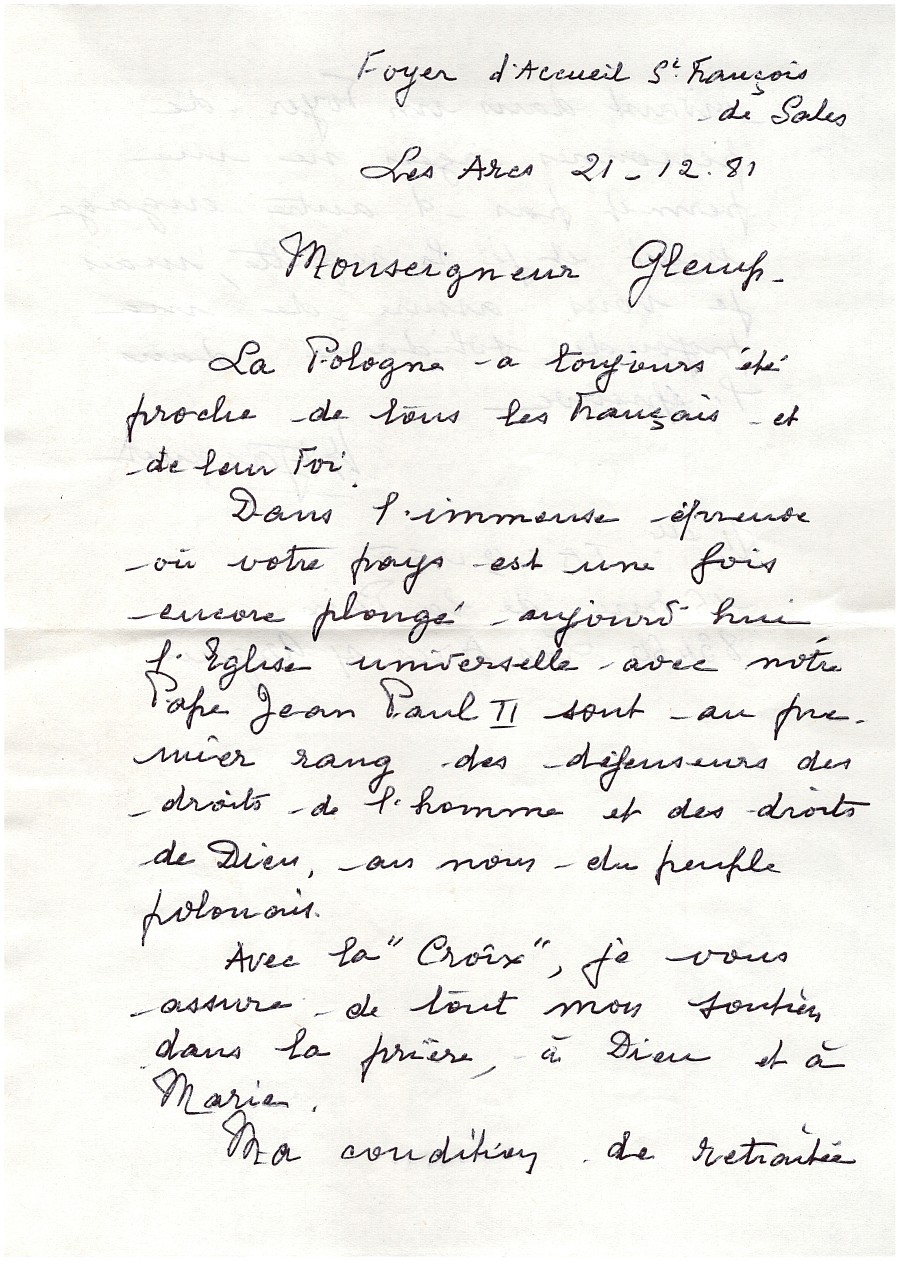 Foyer d'Accueil St François
de Sales
Les Arcs 21-12.81
Monseigneur Glemp-
La Pologne a toujours été
proche de tous les Français et
de leur Foi.
Dans l'immense épreuve
où votre pays est une fois
encore plongé aujourd'hui
l'Eglise universelle avec notre
Pape Jean Paul II sont au pre-
mier rang des défenseurs des
droits de l'homme et des droits
de Dieu, au nom du peuple
polonais.
Avec la "Croix", je vous
assure de tout mon soutien
dans la prière, à Dieu et à
Marie.
Ma condition de retraitée